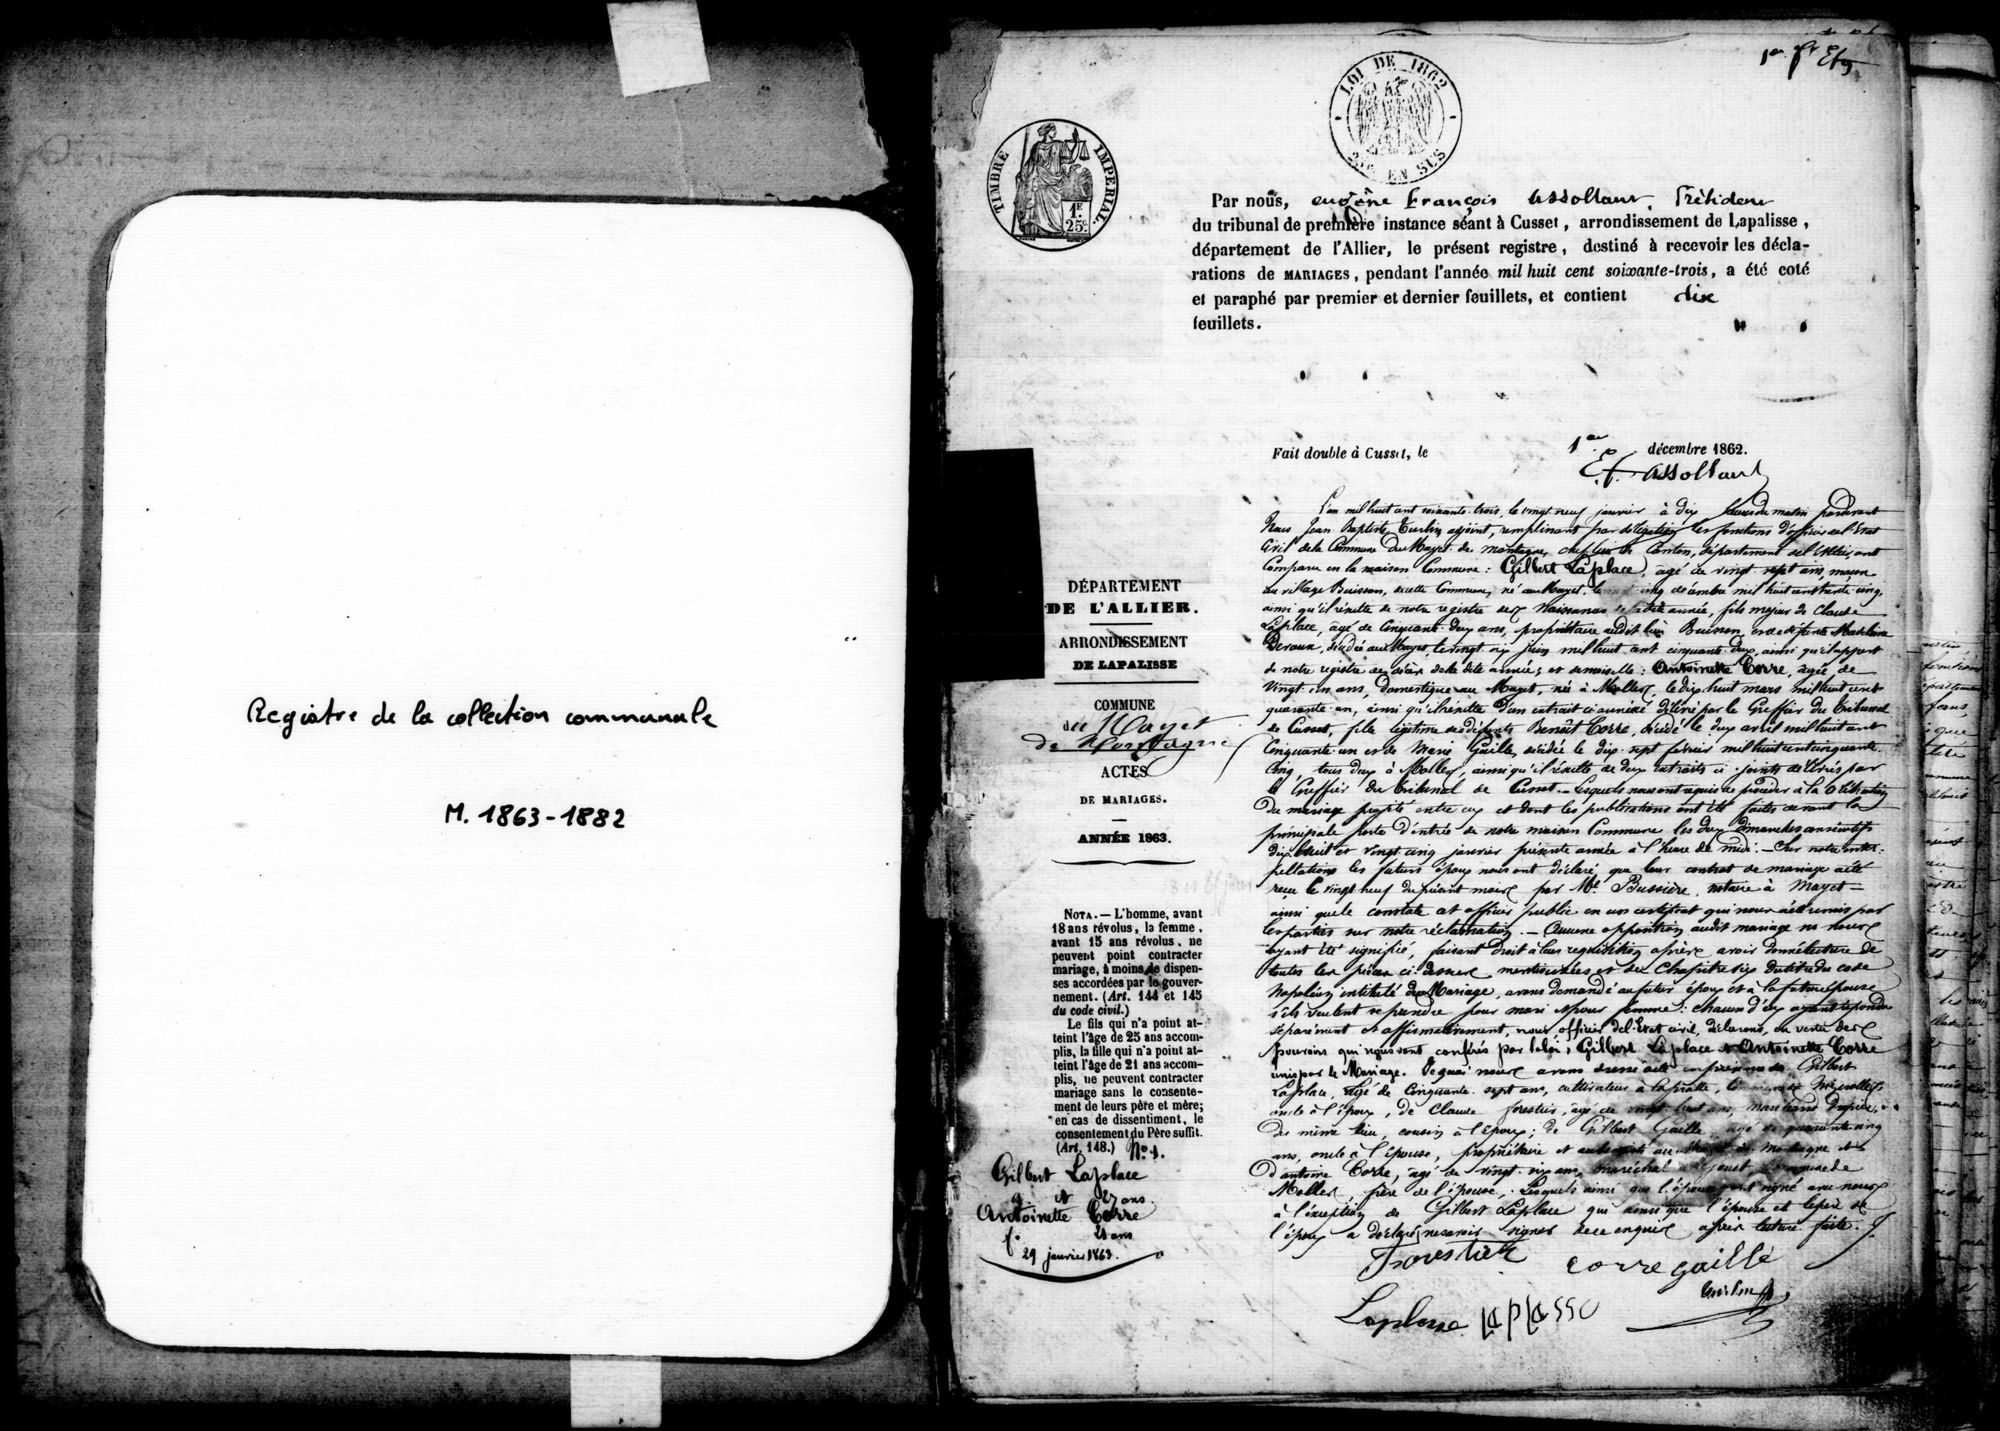 Registre de la collection communale
M. 1863-1882
1er ft
LOI DE 1862
EN SUS
TIMBRE IMPÉRIAL.
1F.
25c
Par nous, eugène françois assollant, Président
du tribunal de première instance séant à Cusset, arrondissement de Lapalisse,
département de l'Allier, le présent registre, destiné à recevoir les décla-
rations de MARIAGES, pendant l'année mil huit cent soixante-trois, a été coté
et paraphé par premier et dernier feuillets, et contient dix
feuillets.
Fait double à Cusset, le 1er décembre 1862.
E. f. assollant
DÉPARTEMENT
DE L'ALLIER.
ARRONDISSEMENT
DE LAPALISSE
COMMUNE
du Mayet
de Montagne
ACTES
DE MARIAGES.
ANNÉE 1863.
NOTA. — L'homme, avant
18 ans révolus, la femme,
avant 15 ans révolus, ne
peuvent point contracter
mariage, à moins de dispen-
ses accordées par le gouver-
nement. (Art. 144 et 145
du code civil.)
Le fils qui n'a point at-
teint l'âge de 25 ans accom-
plis, la fille qui n'a point at-
teint l'âge de 21 ans accom-
plis, ne peuvent contracter
mariage sans le consente-
ment de leurs père et mère;
en cas de dissentiment, le
consentement du Père suffit.
(Art. 148.)
No. 1.
Gilbert Laplace
g. et 27 ans
Antoinette Corre
f. 21 ans
29 janvier 1863.
L'an mil huit cent soixante trois, le vingt neuf janvier à dix heures du matin pardevant
Nous Jean Baptiste adjoint, remplissant par délégation les fonctions d'officier de l'Etat
Civil de la Commune du Mayet de montagne, chef lieu de Canton, département de l'Allier, ont
Comparu en la maison Commune : Gilbert Laplace, âgé de vingt sept ans, maçon
au village Buisson, de cette Commune, né au Mayet, le vingt cinq décembre mil huit cent trente cinq,
ainsi qu'il résulte de notre registre des Naissances de la dite année, fils majeur de Claude
Laplace, âgé de Cinquante deux ans, propriétaire audit lieu Buisson, et de défunte Madeleine
décédée au Mayet, le vingt six juin mil huit cent cinquante deux, ainsi qu'il appert
de notre registre de décès de la dite année; et demoiselle : Antoinette Corre, âgée de
Vingt un ans, domestique au Mayet, née à Molles, le dix huit mars mil huit cent
quarante un, ainsi qu'il résulte d'un extrait ci annexé délivré par le Greffier du Tribunal
de Cusset, fille légitime des défunts Benoît Corre, décédé le deux avril mil huit cent
Cinquante un et de Marie Gaille, décédée le dix sept février mil huit cent cinquante
Cinq, tous deux à Molles, ainsi qu'il résulte de deux extraits ci joints délivrés par
le Greffier du Tribunal de Cusset. — Lesquels nous ont requis de procéder à la Célébration
du mariage projeté entre eux et dont les publications ont été faites devant la
principale porte d'entrée de notre maison Commune les deux dimanches consécutifs
dix huit et vingt cinq janvier présente année à l'heure de midi. — Sur notre inter-
pellation les futurs époux nous ont déclaré, que leur contrat de mariage a été
reçu le vingt neuf du présent mois par Me Bussière, notaire à Mayet —
ainsi que le constate cet officier public en un certificat qui nous a été remis par
les parties sur notre réclamation. — Aucune opposition audit mariage ne nous
ayant été signifié, faisant droit à leur réquisition, après avoir donné lecture de
toutes les pièces ci-dessus mentionnées et du Chapitre six du titre du code
Napoléon intitulé du Mariage, avons demandé au futur époux et à la future épouse
s'ils veulent se prendre pour mari et pour femme : chacun d'eux ayant répondu
séparément et affirmativement, nous officier de l'Etat civil, déclarons, en vertu des
pouvoirs qui nous sont conférés par la loi, Gilbert Laplace et Antoinette Corre
unis par le Mariage. De quoi nous avons dressé acte en présence de Gilbert
Laplace, âgé de Cinquante sept ans, cultivateur à
oncle à l'époux, de Claude forestier, âgé de vingt huit ans,
du même lieu, cousin à l'époux; de Gilbert Gaille, âgé de quarante cinq
ans, oncle à l'épouse, propriétaire et aubergiste au Mayet de Montagne et
d'antoine Corre, âgé de vingt six ans, maréchal Commune de
Molles, frère de l'épouse. Lesquels ainsi que l'époux ont signé avec nous
à l'exception de Gilbert Laplace qui ainsi que l'épouse et le père de
l'époux a déclaré ne savoir signer de ce enquis après lecture faite.
Forestier corre gaille
Laplasse